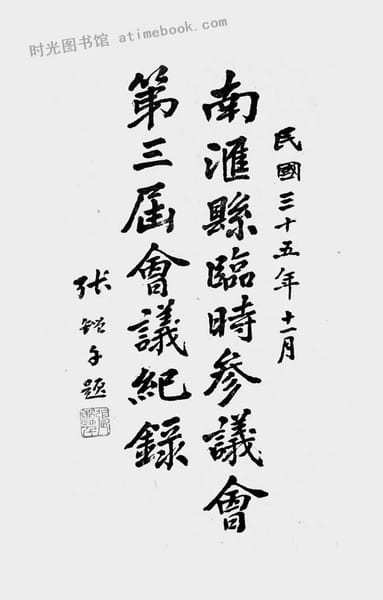 时光图书馆 atimebook.com
民國三十五年十一月
南滙縣臨時參議會
第三屆會議紀錄
张 千題